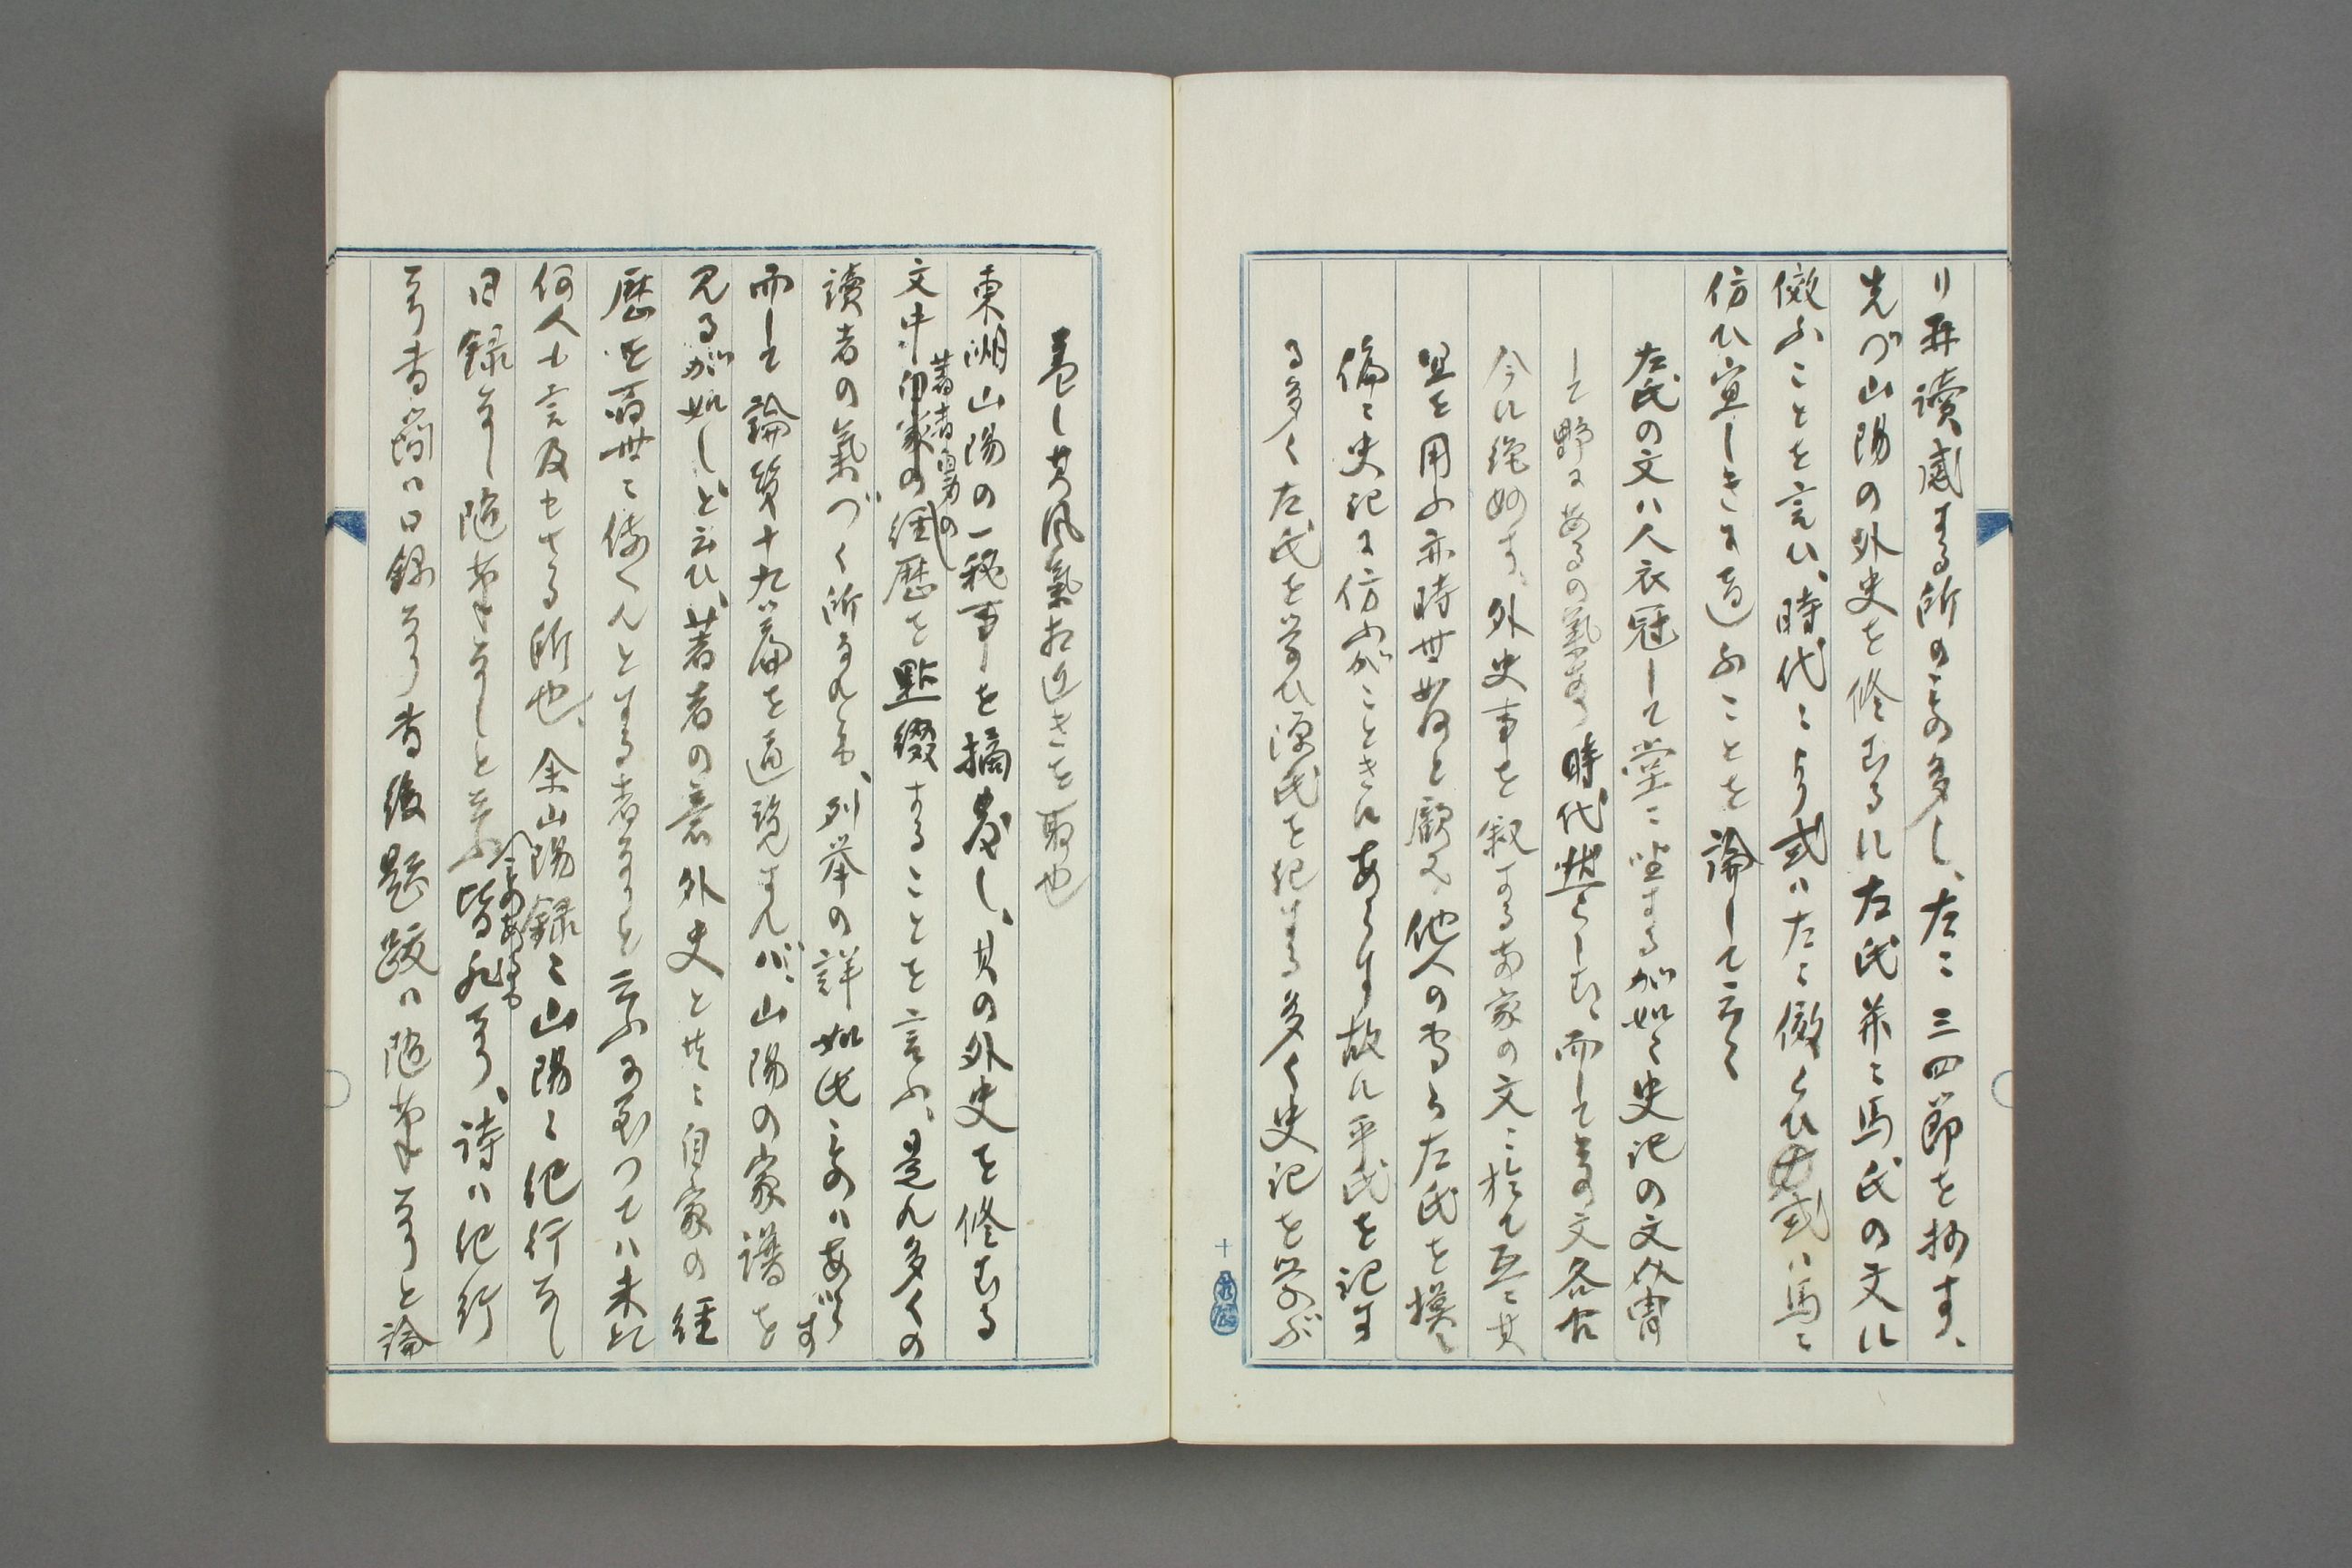 り再讀、感ずる所のもの多し、左に三四節を抄す、
先づ山陽の外史を修むるに左氏并に馬氏の文に
倣ふことを言ひ、時代により或ハ左に倣ひ或ハ馬に
仿ひ宜しきに適ふことを論して云く
左氏の文ハ人衣冠して堂に坐するが如く史記の文介冑
して野にあるの氣あり時代然らしむ、而して其の文各古
今に絶妙す、外史事を叙する両家の文に於て互に其
宜を用ふ亦時世如何と顧み、他人の専ら左氏を摸し
偏に史記に仿ふがごときにあらず故に平氏を記す
る多く左氏を学ひ源氏を記する多く史記を学ぶ
十
蓋し其風氣相近きを取也
東湖山陽の一秘事を摘發し、其の外史を修むる
文中著者自身の經歴を點綴することを言ふ、是れ多くの
讀者の氣づく所なれども、列挙の詳如此ものハあらず
而して論賛十九篇を通覧すれバ、山陽の家譜を
見るが如しと云ひ、著者の意外史と共に自家の經
歴を萬世に傳へんとする者なりと云ふに至つてハ未た
何人も言及せさる所也、余山陽録に山陽に紀行なし
日録なし随筆なしと云ふものあるも皆非なり、詩ハ紀行
なり書簡ハ日録なり書後題跋ハ随筆なりと論